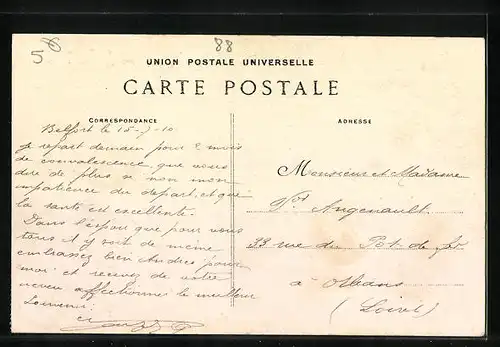 58
88
UNION POSTALE UNIVERSELLE
CARTE POSTALE
CORRESPONDANCE
ADRESSE
Belfort le 15-7-10
Je repart demain pour 2 mois
de convalescence, que vous
dire de plus si non mon
impatience du depart, et que
la santé est excellente.
Dans l'espoir que pour vous
tous il y soit de meme
embrassez bien Andrée pour
moi et recevez de votre
neveu affectionné le meilleur
Souvenir
Monsieur et Madame
Angenault
33 rue du Pot de fer
à Orléans
(Loiret)